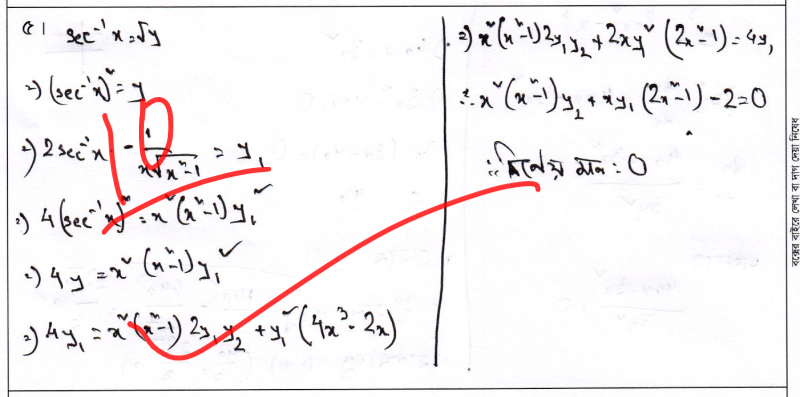 sec⁻¹x = √y
⇒) (sec⁻¹x)² = y
⇒) 2sec⁻¹x · 1/(x√(x²-1)) = y₁
⇒) 4(sec⁻¹x)² = x²(x²-1) y₁²
⇒) 4y = x² (x²-1) y₁²
⇒) 4y₁ = x²(x²-1) 2y₁y₂ + y₁² (4x³ - 2x)
⇒) x²(x²-1) 2y₁y₂ + 2xy₁² (2x²-1) = 4y₁
∴ x²(x²-1)y₂ + xy₁ (2x²-1) - 2 = 0
∴ নির্ণেয় মান = 0
বক্সের বাইরে লেখা বা দাগ দেয়া নিষেধ